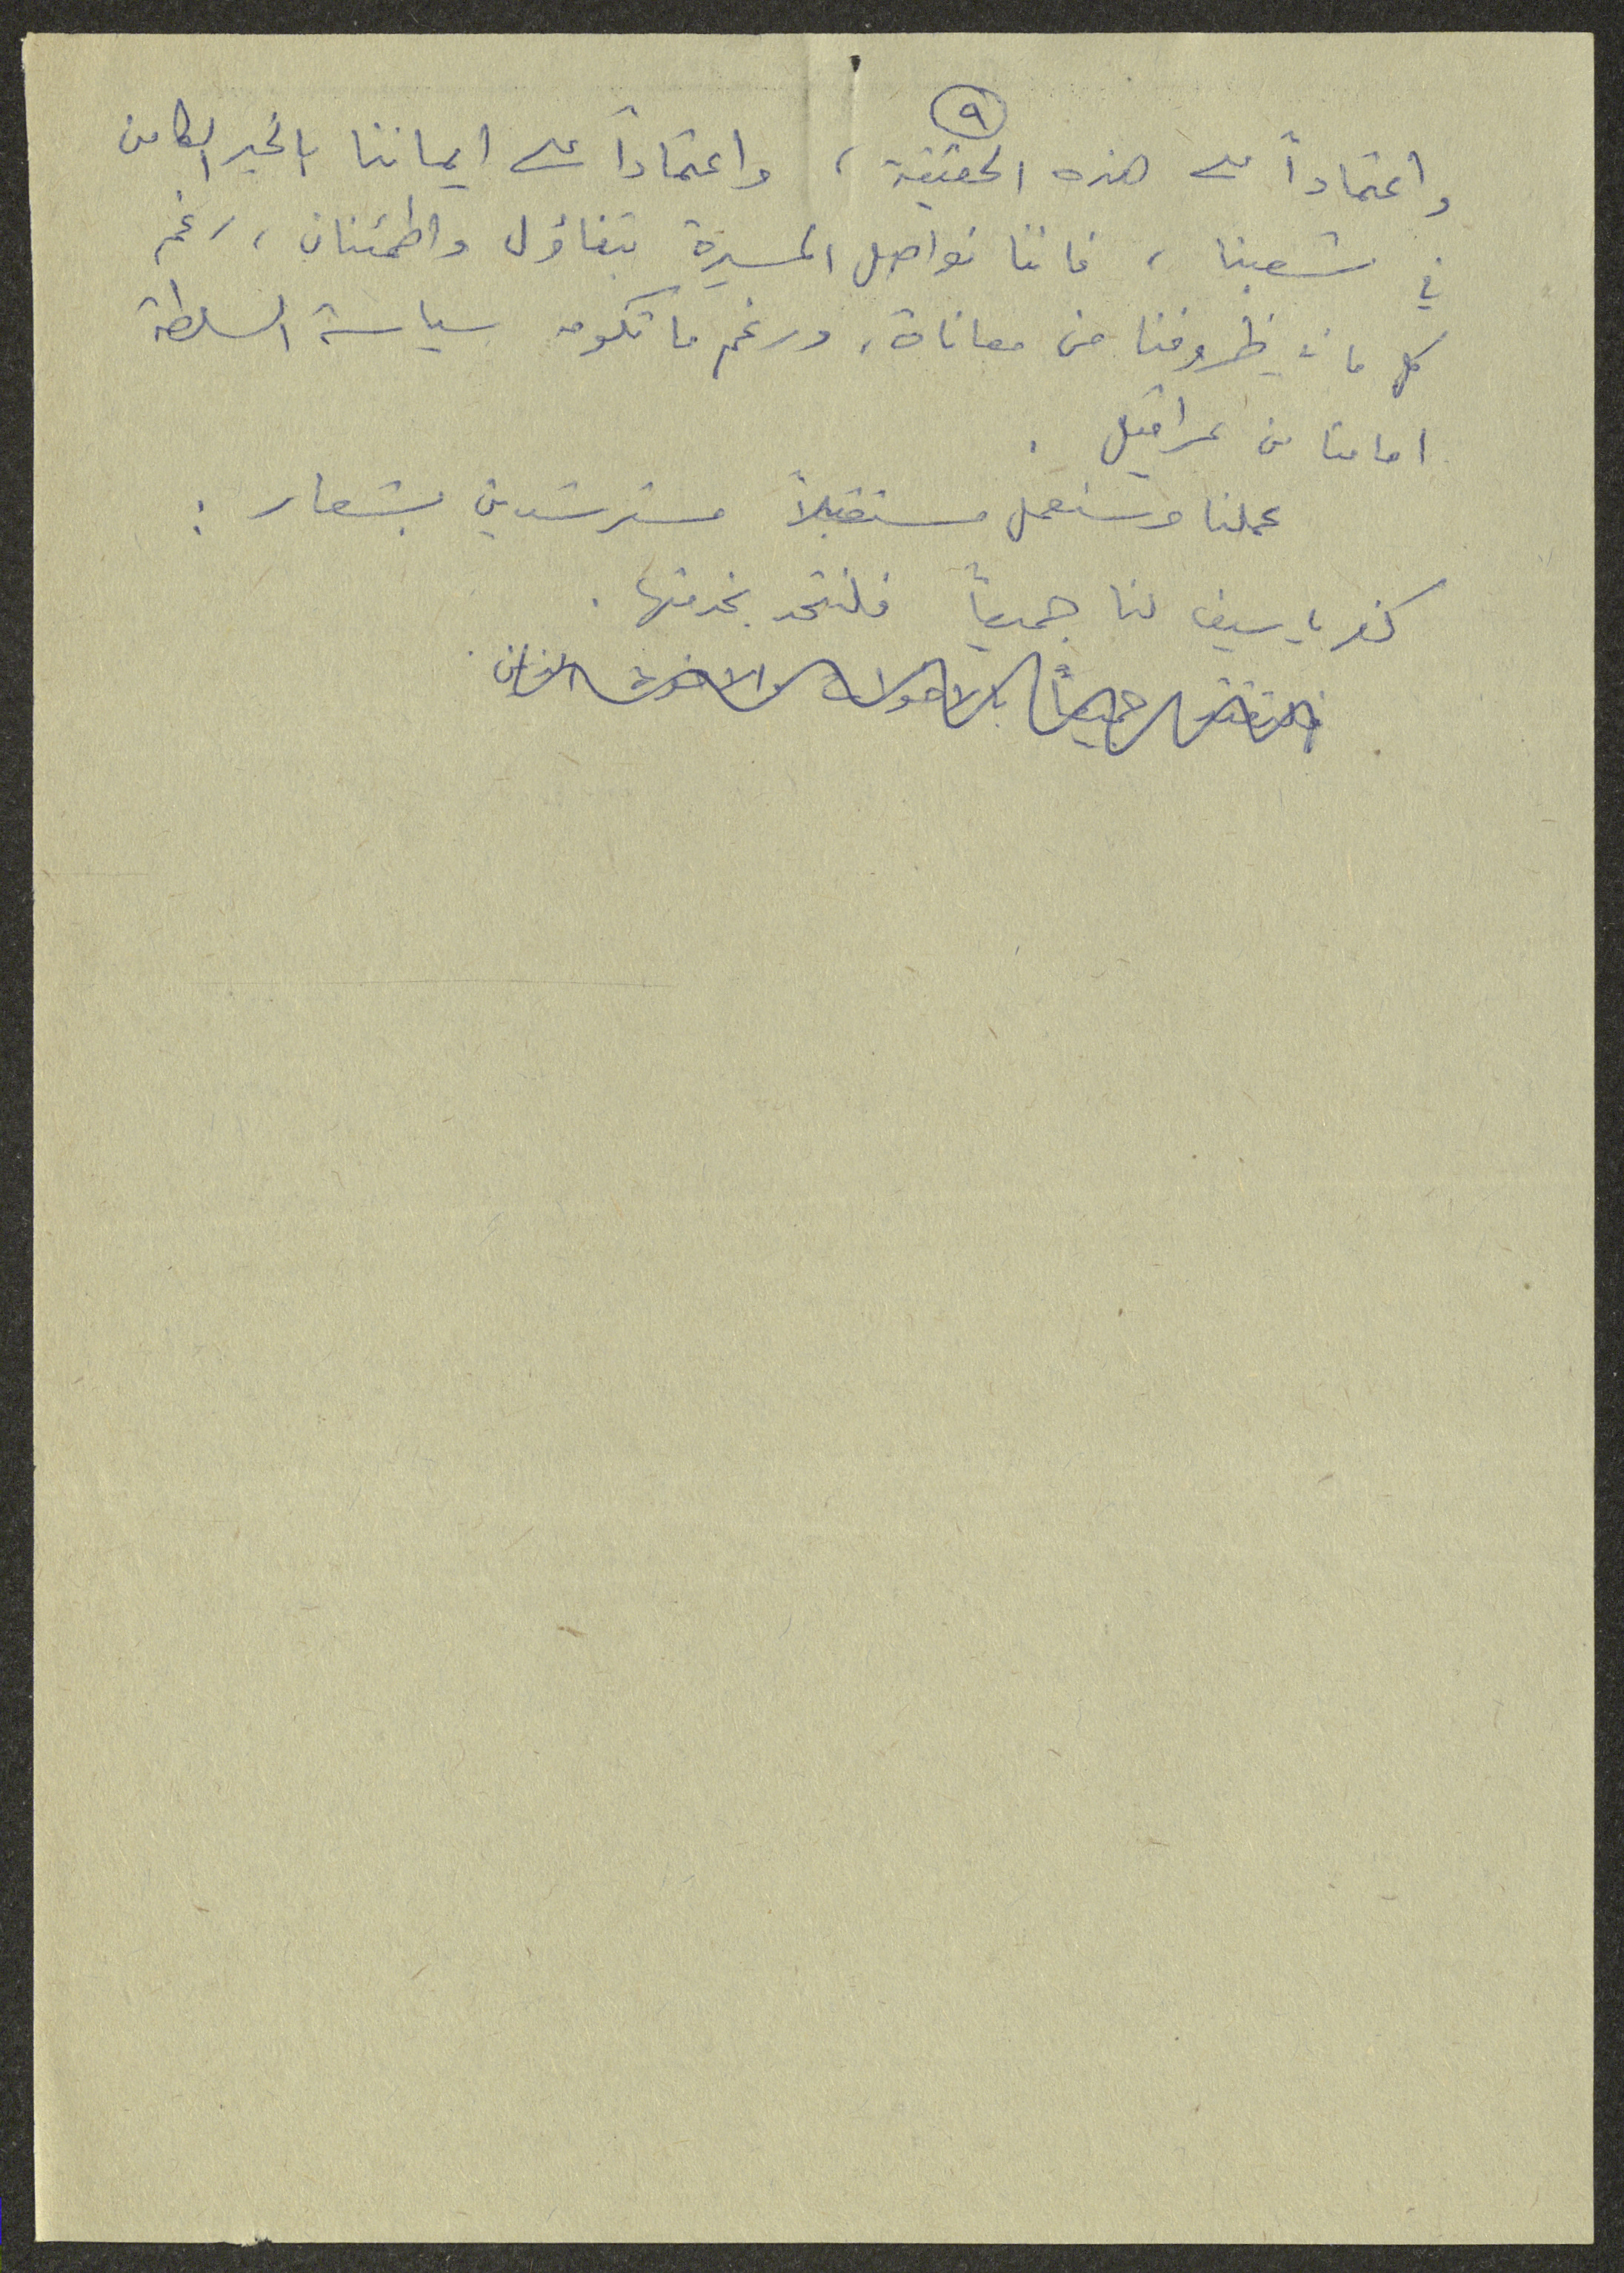 ٩
واعتماداً على هذه الحقيقة، واعتماداً على ايماننا بالخير الكامن
في شعبنا، فاننا نواصل المسيرة بتفاؤل واطمئنان، رغم
كل ما في ظروفنا من معاناة، ورغم ما تكومه سياسة السلطة
امامنا من عراقيل.
عملنا وسنعمل مستقبلاً مسترشدين بشعار:
كفر ياسيف لنا جميعاً فلنتحد بخدمتها.
جميعاً